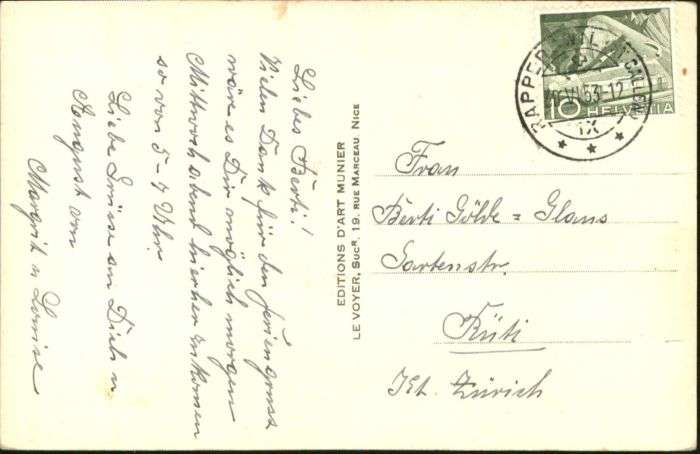 Liebes Berti!
Vielen Dank für den Feriengruss
wäre es Dir möglich morgen
Mittwoch abend hierher zu komen
so von 5-7 Uhr.
Liebe Grüsse an Dich u.
August von
Margrit u Louise
EDITIONS D'ART MUNIER
LE VOYER, SUCR, 19, RUE MARCEAU NICE
RAPPERSWIL (ST. GALLEN)
VII 53-12
IX
10 HELVETIA
Frau
Berti Gölde = Glaus
Gartenstr.
Rüti
Kt. Zürich